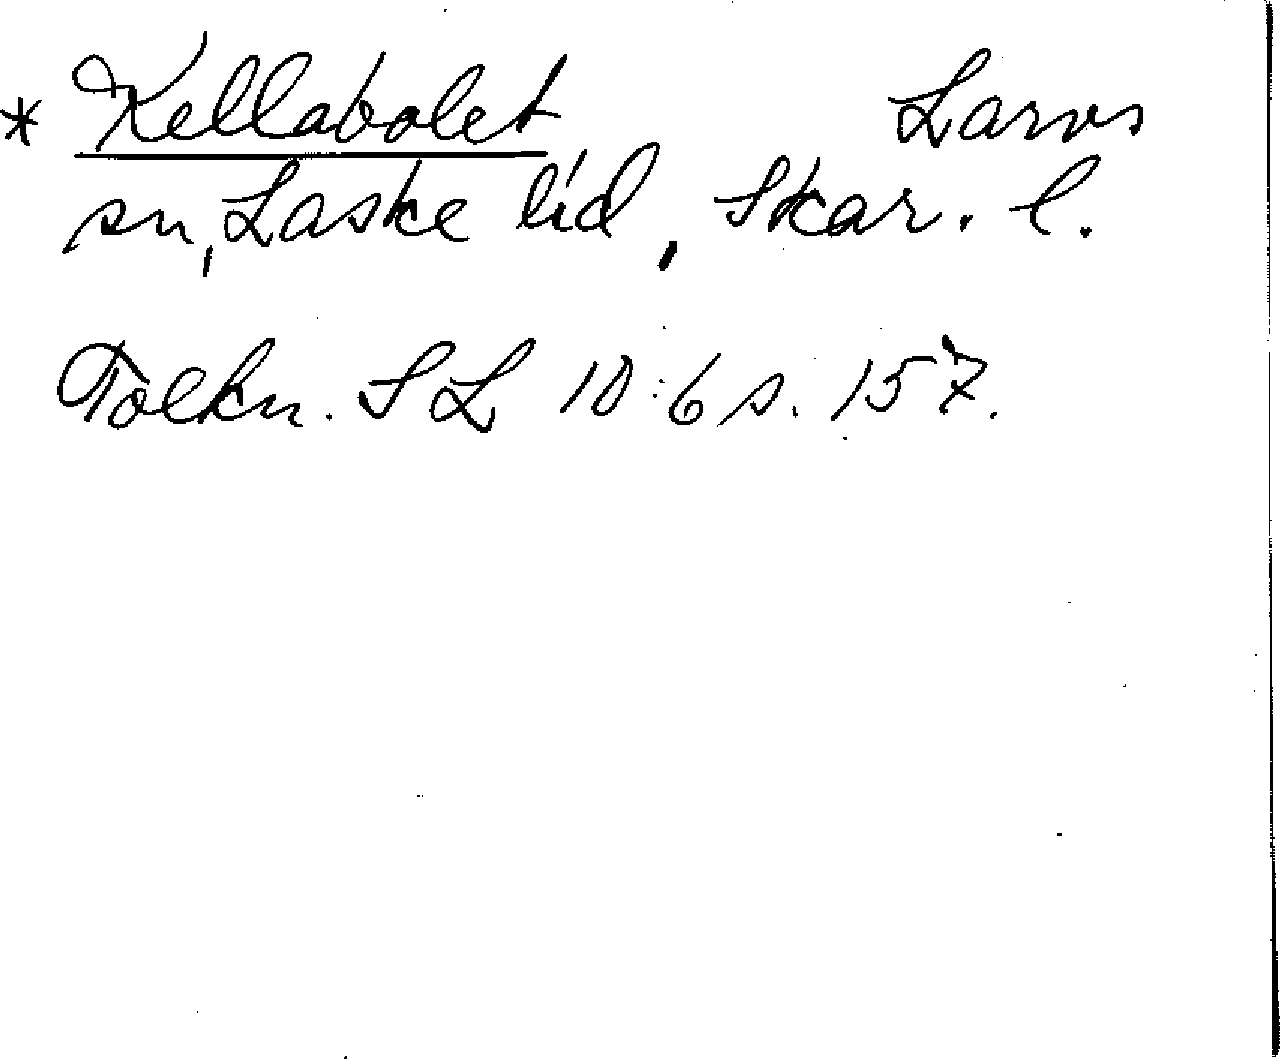 * Kellabolet Larvs
sn, Laske hd, Skar. l.
Tolkn. SL 10:6 s. 157.